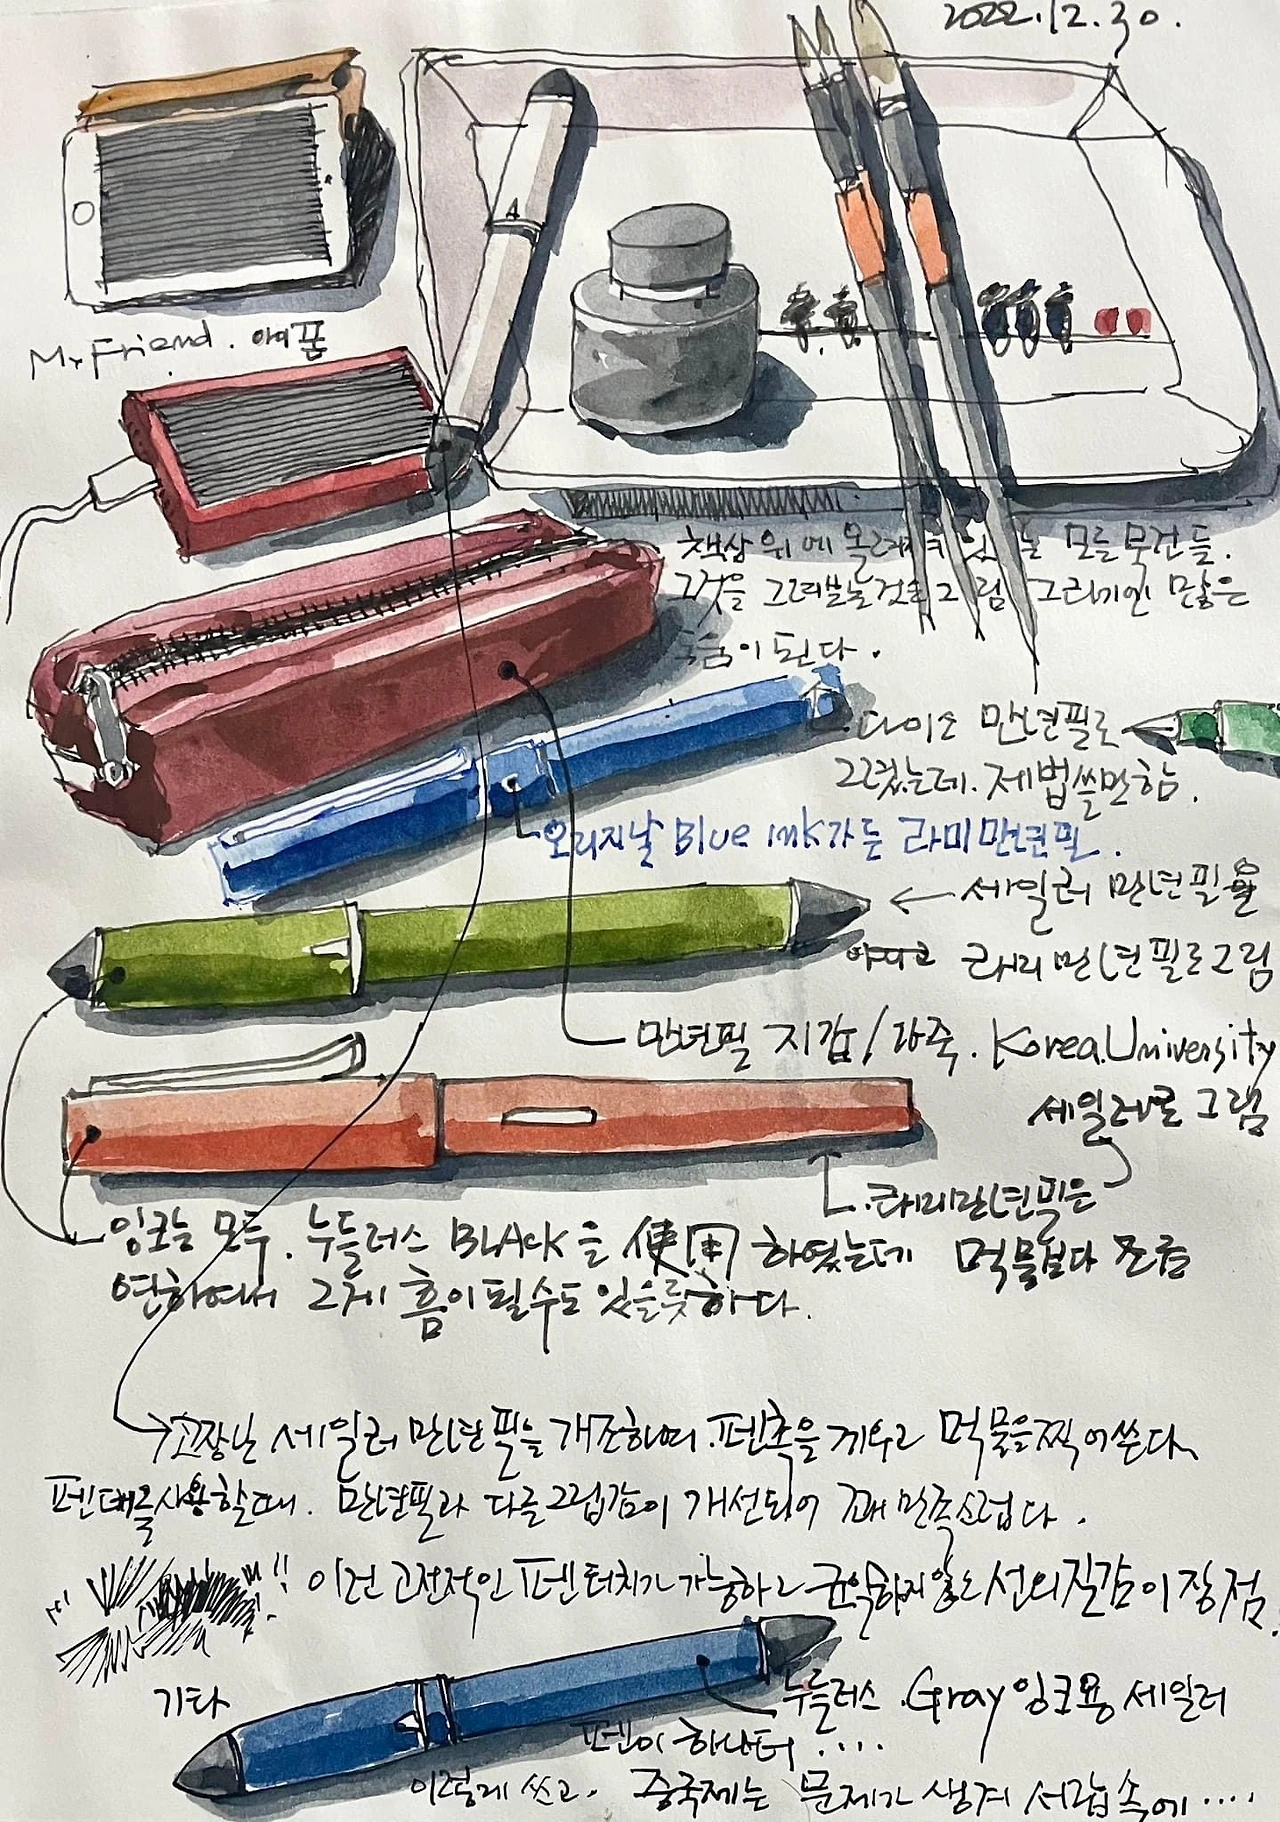 2022.12.30.
My Friend. 아이폰
책상 위에 올려져 있는 모든 물건들.
그것을 그려보는것은 그림 그리기엔 많은
도움이 된다.
다이소 만년필로
그렸는데. 제법쓸만함.
오리지날 Blue ink가든 라미만년필.
← 세일러 만년필을
아끼고 라미만년필로그림
만년필 지갑/가죽. Korea.University
세일러로 그림
라미만년필은
잉크는 모두. 누들러스 BLAck을 使用 하였는데 먹물보다 조금
연하여서 그게 흠이될수도 있을듯하다.
고장난 세일러 만년필을 개조하여. 펜촉을 끼우고 먹물을찍어쓴다.
펜대를사용할때. 만년필과 다른그립감이 개선되어 꽤 만족스럽다.
!! 이건 고전적인 펜터치가 가능하고 균일하지않은선의질감이 장점.
기타
누들러스. Gray 잉크용 세일러
펜이 하나더 ....
이렇게 쓰고. 중국제는 문제가 생겨 서랍속에 ....